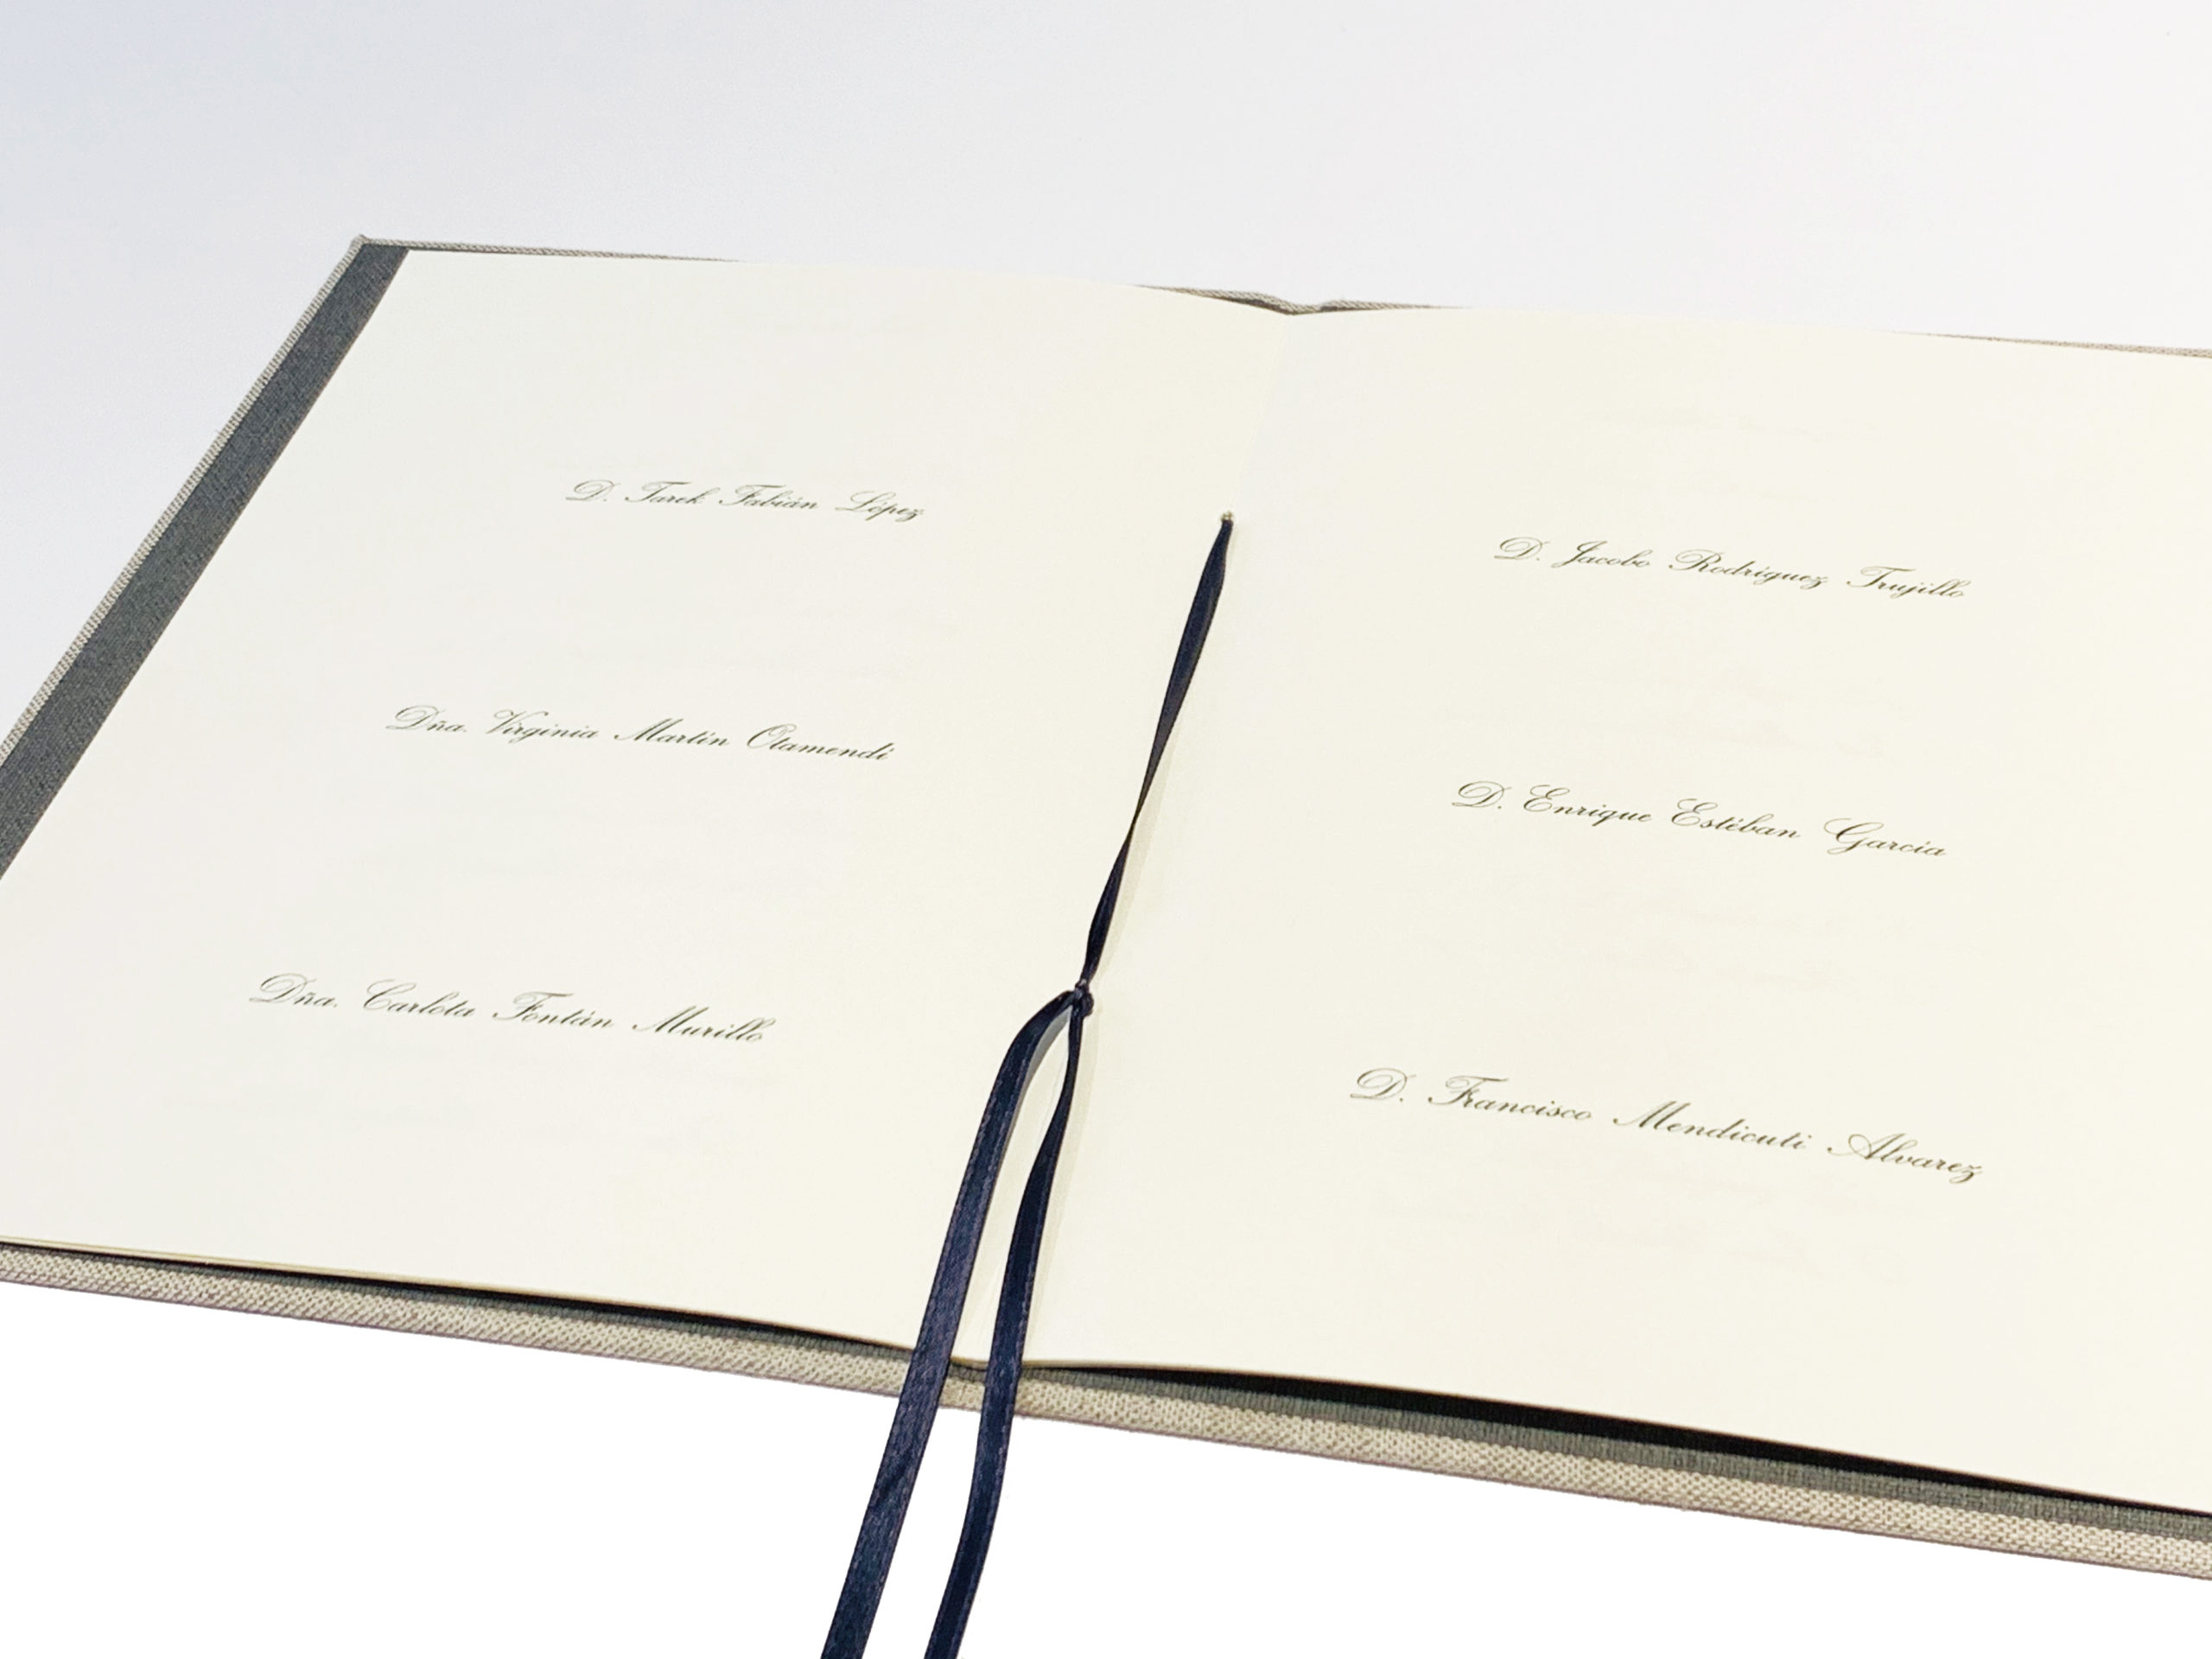 D. Tarek Fabián López
Dña. Virginia Martín Otamendi
Dña. Carlota Fontán Murillo
D. Jacobo Rodríguez Trujillo
D. Enrique Estéban García
D. Francisco Mendicuti Alvarez